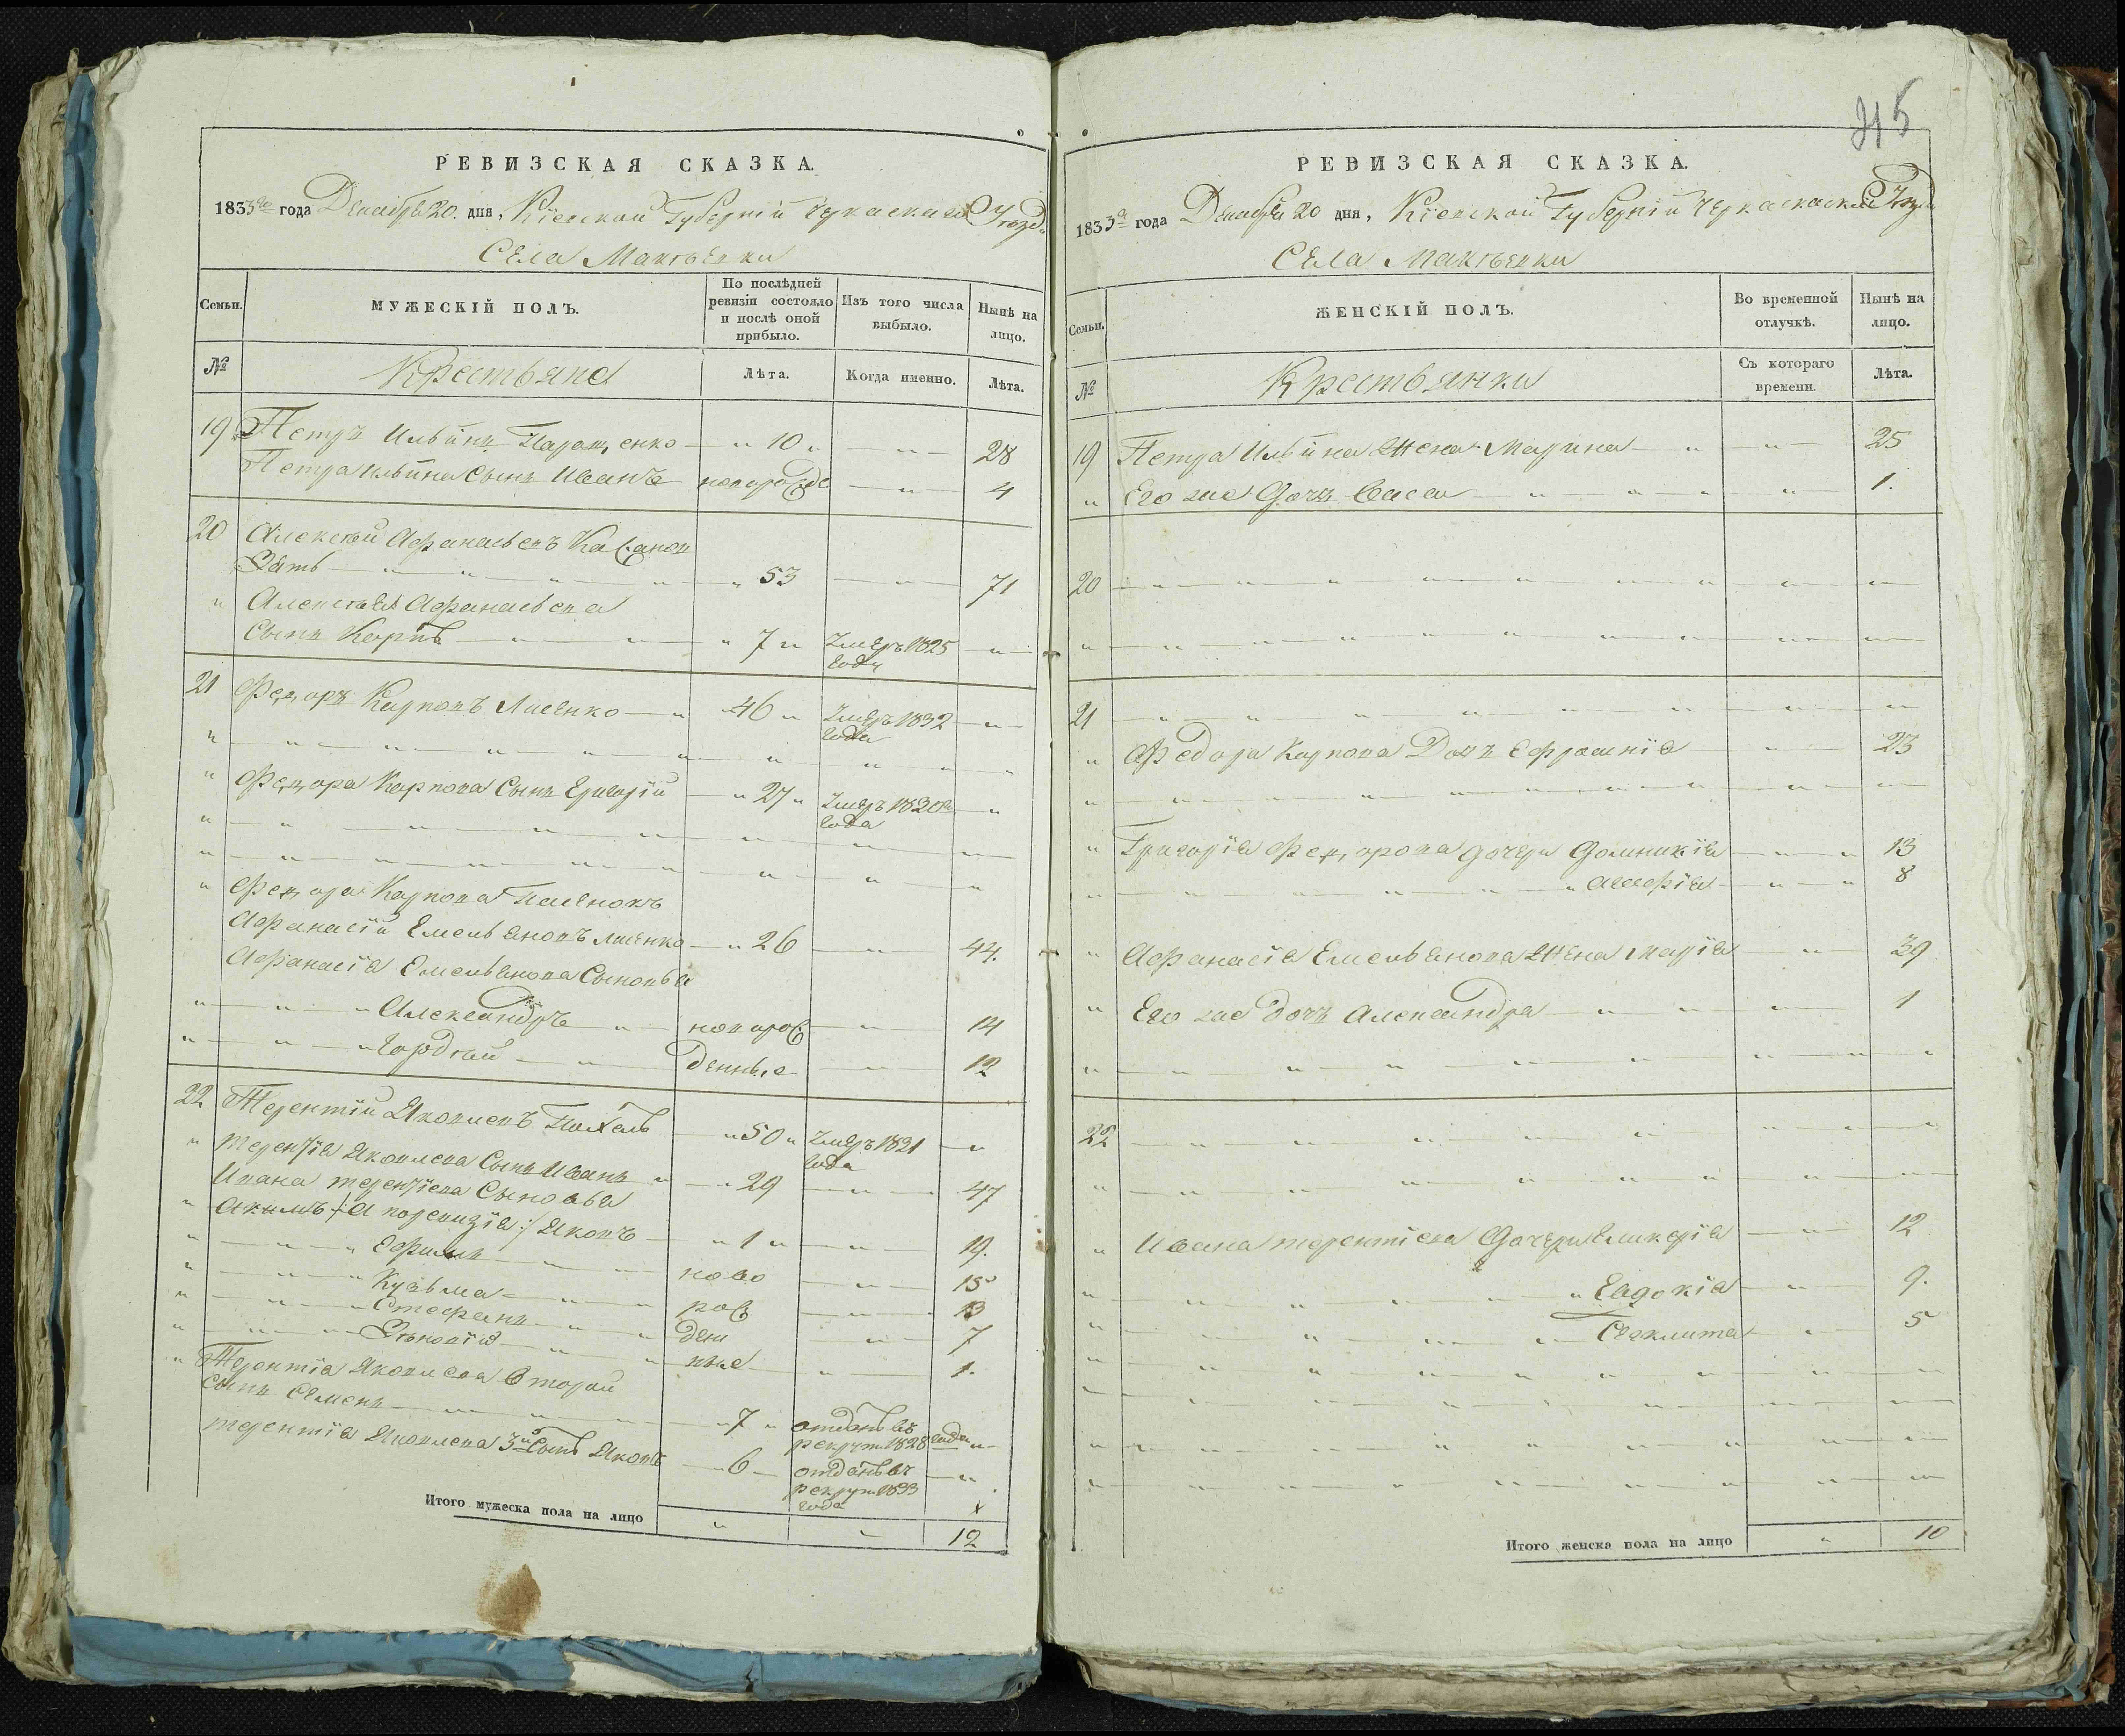 РЕВИЗСКАЯ СКАЗКА.
1833го года Декабря 20. дня, Кіевской Губерніи Черкаскаго Уезда
Села Макѣевки
Семьи.
МУЖЕСКІЙ ПОЛЪ.
По послѣдней ревизіи состояло и послѣ оной прибыло.
Изъ того числа выбыло.
Нынѣ на лицо.
№
Крестьяне
Лѣта.
Когда именно.
Лѣта.
19 Петръ Ильинъ — " 10 " — " — 28
Петра Ильина Сынъ Иванъ новорожде — " — 4
20 Алексѣй Афанасьевъ
Зять — " — " — " — " 53 — " — 71
" Алексѣя Афанасьева
Сынъ Карпъ — " — " — " 7 " Умеръ 1825 — " —
году
21 Федоръ Карповъ Лисенко — " "46 " Умеръ 1832 — " —
года
" Федора Карпова Сынъ Григорій — " 27 " Умеръ 1820 — "
года
" Федора Карпова
Афанасій Емельяновъ Лисенко — " 26 — " — 44.
Афанасія Емельянова Сыновья
" — " — " Александръ — " — новорож — " — 14
" — " — " Гордѣй — " — денные — " — 12
22 Терентій Яковлевъ — "50 " Умеръ 1821 — "
года
" Терентія Яковлева Сынъ Иванъ " — " 29 — " — 47
Ивана Терентіева Сыновья
" Акимъ /: а по ревизіи :/ Яковъ — " 1 " — " — 19.
" — " — " Ефимъ — " — ново — " — 15
" — " — " Кузьма — " — рож — " — 13
" — " — " Стефанъ — " — ден — " — 7
" — " — " Зѣновій — " — ные — " — 1.
" Терентія Яковлева Второй
Сынъ Семенъ — " — " — "7 " отданъ въ
рекрут 1828 года "
Терентія Яковлева 3й Сынъ Яковъ — "6 — отданъ въ — "
рекрут 1833
года
Итого мужеска пола на лицо " " 12
215
РЕВИЗСКАЯ СКАЗКА.
1833го года Декабря 20 дня, Кіевской Губерніи Черкаской Уезда
Села Макѣевки
Семьи.
ЖЕНСКІЙ ПОЛЪ.
Во временной отлучкѣ.
Нынѣ на лицо.
№
Крестьянки
Съ котораго времени.
Лѣта.
19 Петра Ильина Жена Марина — " — " — 25
" Его же Дочь Васса — " — " — " 1.
20
21
" Федора Карпова Дочь Ефросинія — " — 23
" Григорія Федорова Дочери Домникія — " — 13
" — " — " — 8
" Афанасія Емельянова Жена Марія — " — 39
" Его же Дочь Александра — " — " — 1
22
" Ивана Терентіева Дочери Гликерія — " — 12
" — " — " Евдокія — " — 9.
" — " — " Феклита — " — 5
Итого женска пола на лицо " 10